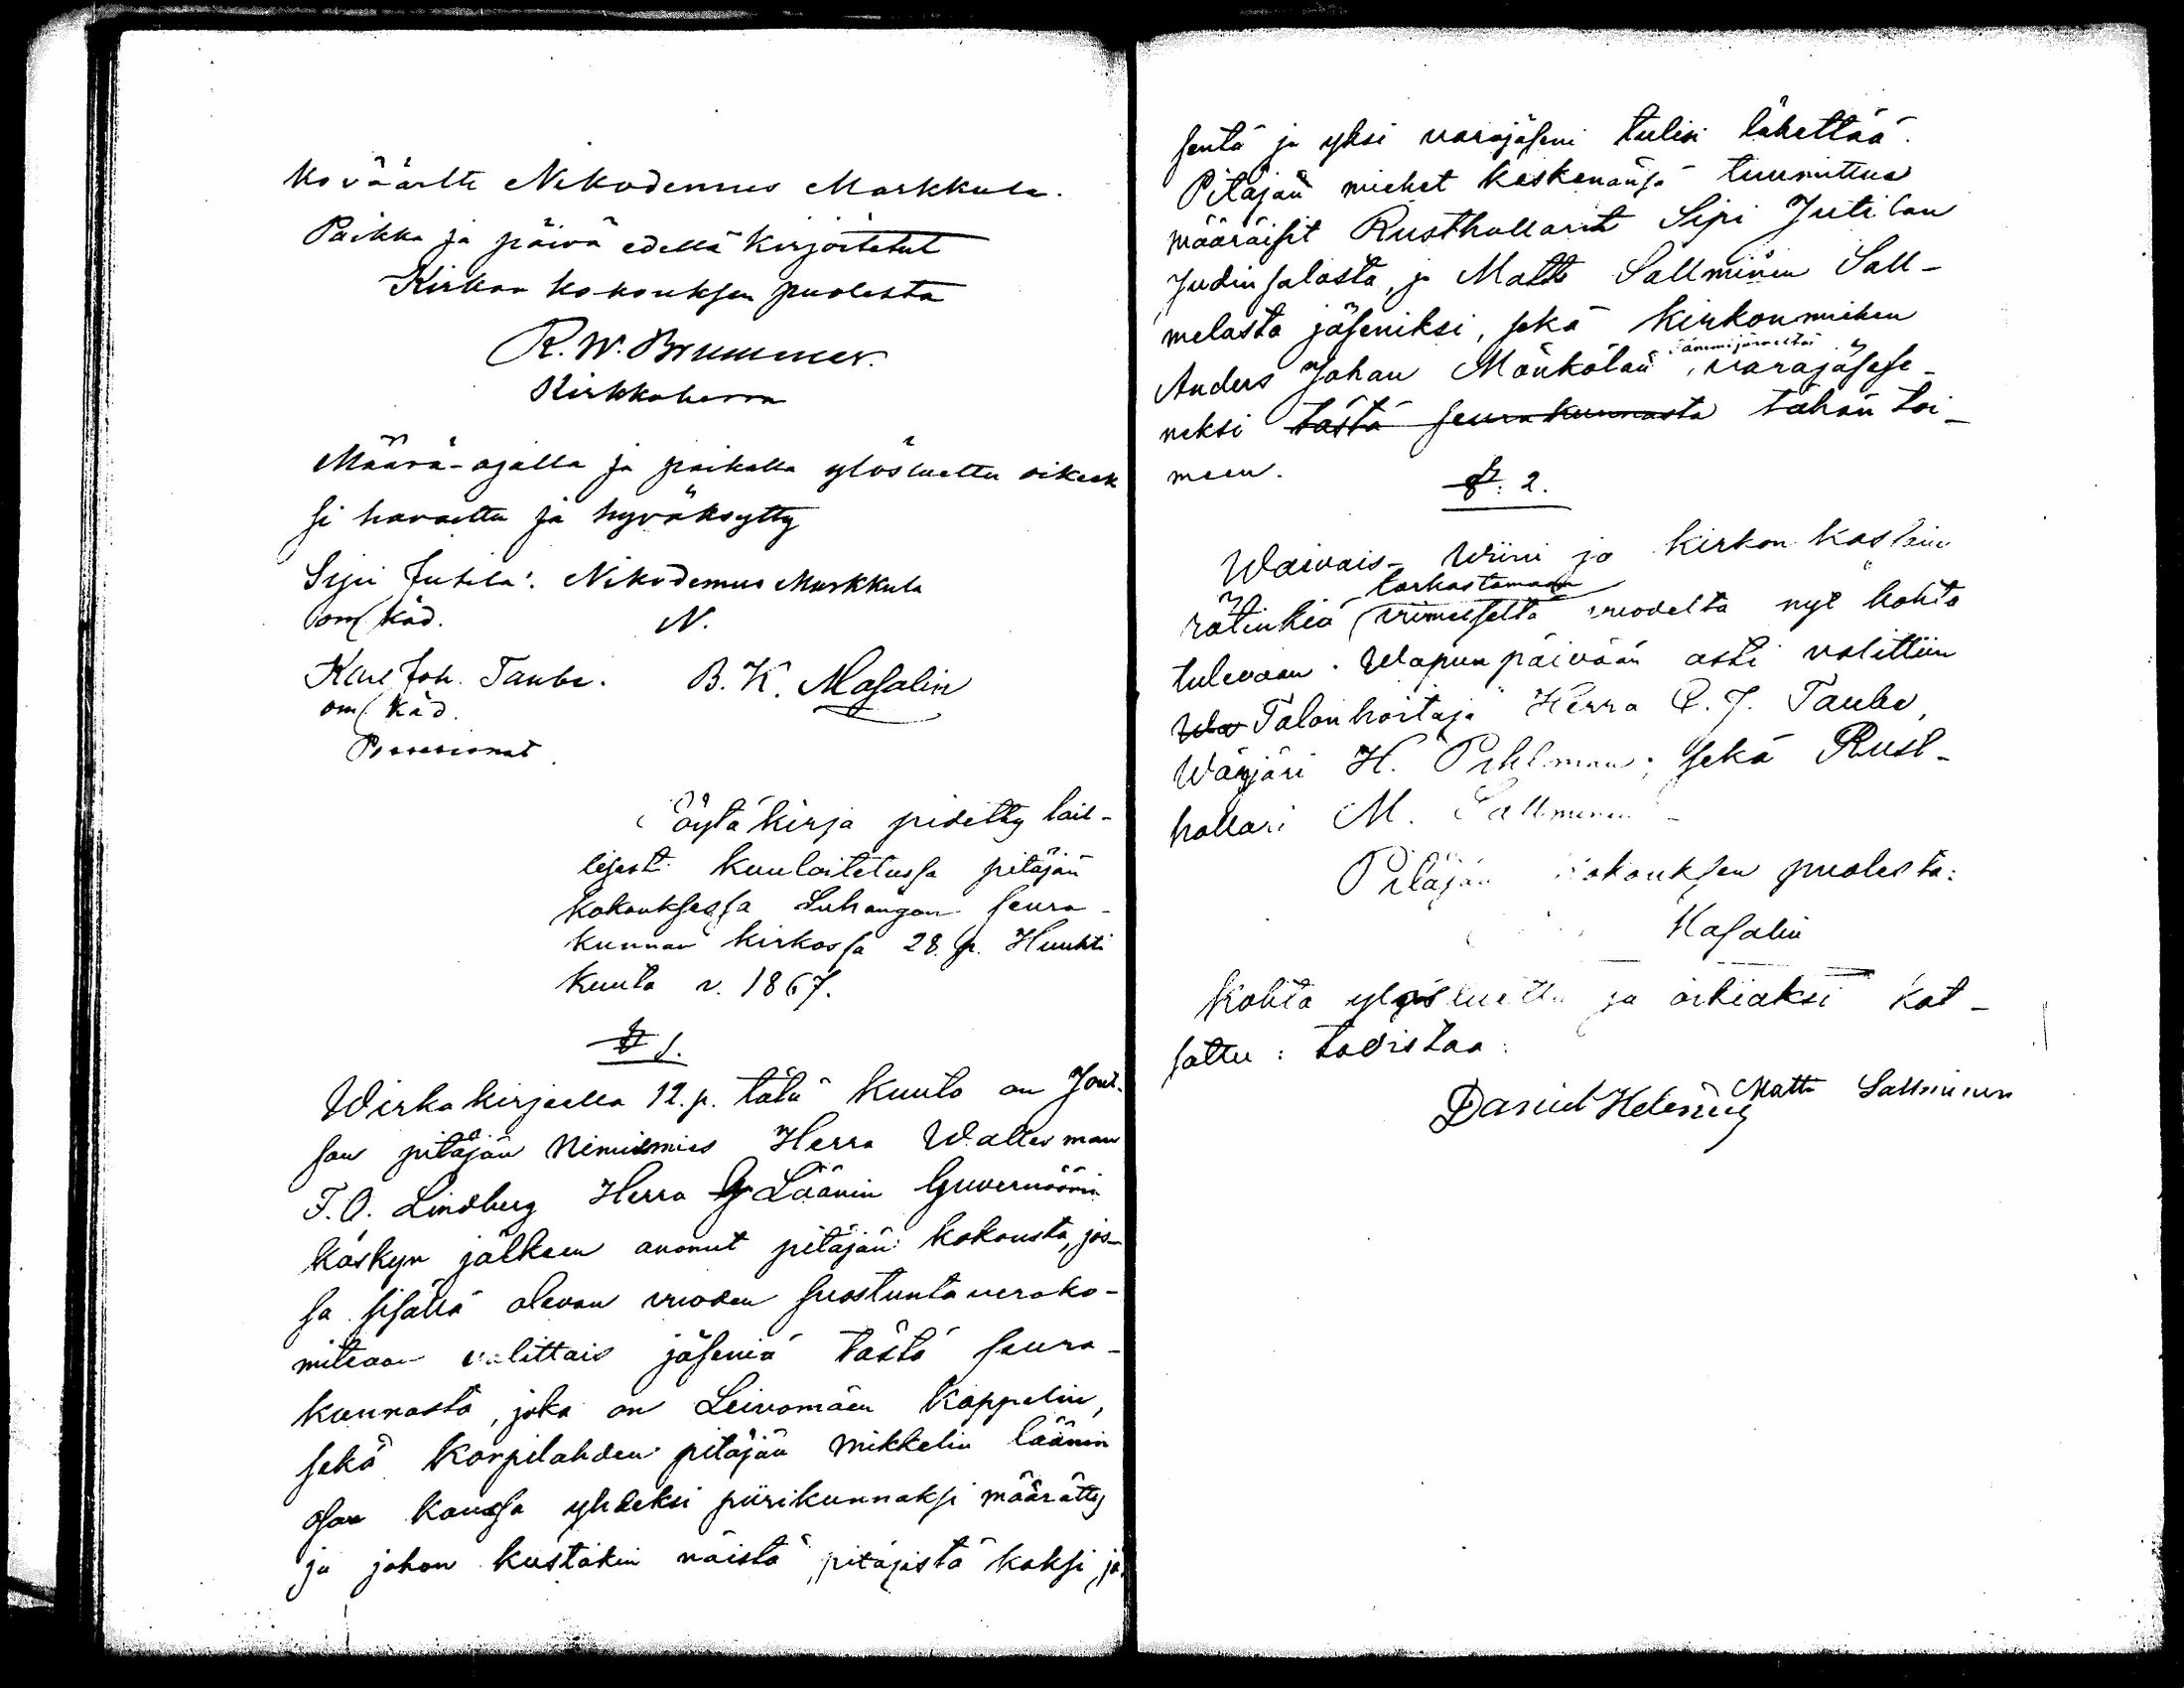 ko väärtti Nikodemus Markkula.
Paikka ja päivä edellä kirjoitetut
Kirkon kokouksen puolesta
R. W. Brummer.
Kirkkoherra
Määrä-ajalla ja paikalla ylösluettu oikeek
si havaittu ja hyväksytty
Sipi Jutila. Nikodemus Markkula
om/ käd. N.
Karl Joh. Taube. B. K. Masalin
om/ käd.
Pöytäkirja pidetty lail-
lisesti kuuloitetussa pitäjän
kokouksessa Luhangon seura-
kunnan kirkossa 28. p. Huhti
kuuta v. 1867.
§ 1.
Wirkakirjalla 12. p. tätä kuuta on Jout-
san pitäjän Nimismies Herra Wallesman
F. O. Lindberg Herra Läänin Guvernöörin
käskyn jälkeen anonut pitäjän kokousta, jos-
sa sisällä olevan vuoden suostuntaveroko-
miteaan valittais jäseniä tästä seura-
kunnasta, joka on Leivomäen kappelin,
sekä Korpilahden pitäjän Mikkelin läänin
osan kanssa yhdeksi piirikunnaksi määrätty
ja johon kustakin näistä pitäjistä kaksi jä-
sentä ja yksi varajäseni tulisi lähettää.
Pitäjän miehet keskenänsä tuumittua
määräisit Rusthollarit Sipi Jutilan
Judinsalosta, ja Matti Sallminen Sall-
melasta jäseniksi, sekä kirkonmiehen
Tammijärveltä
Anders Johan Mönkölän, varajäsese-
neksi tästä seurakunnasta tähän toi-
meen.
§: 2.
Waivais- Wiini ja kirkon kassain
tarkastamaan
rätinkiä viimeiseltä vuodelta nyt kohta
tulevaan Wapun päivään asti valittiin
Wa Talonhoitaja Herra C. J. Taube,
Wärjäri H. Pihlman; sekä Rust-
hollari M. Sallminen
Pitäjän kokouksen puolesta:
Masalin
Kohta ylösluettu ja oikiaksi kat-
sottu: todistaa:
Daniel Helenius Matti Sallminen